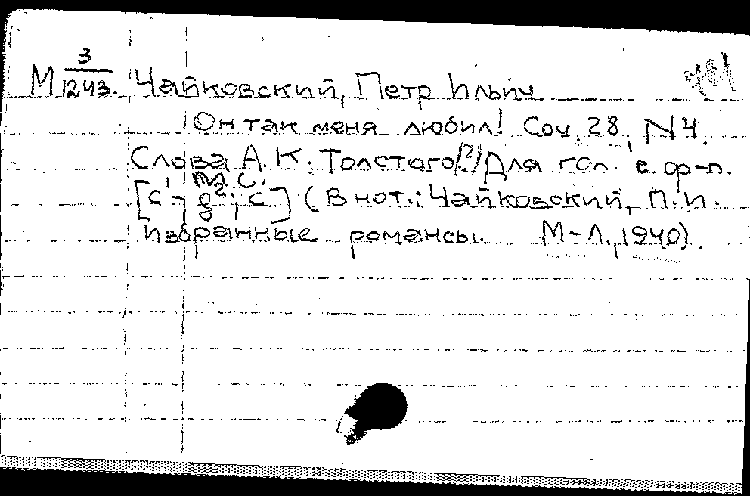 М 3/1243. Чайковский, Петр Ильич
Он так меня любил! Соч. 28, N4.
Слова А. К. Толстого(?) Для гол. с ф-п.
м. с.
[c¹ - g²; c] (В нот.: Чайковский, П. И.
Избранные романсы. М-Л., 1940).